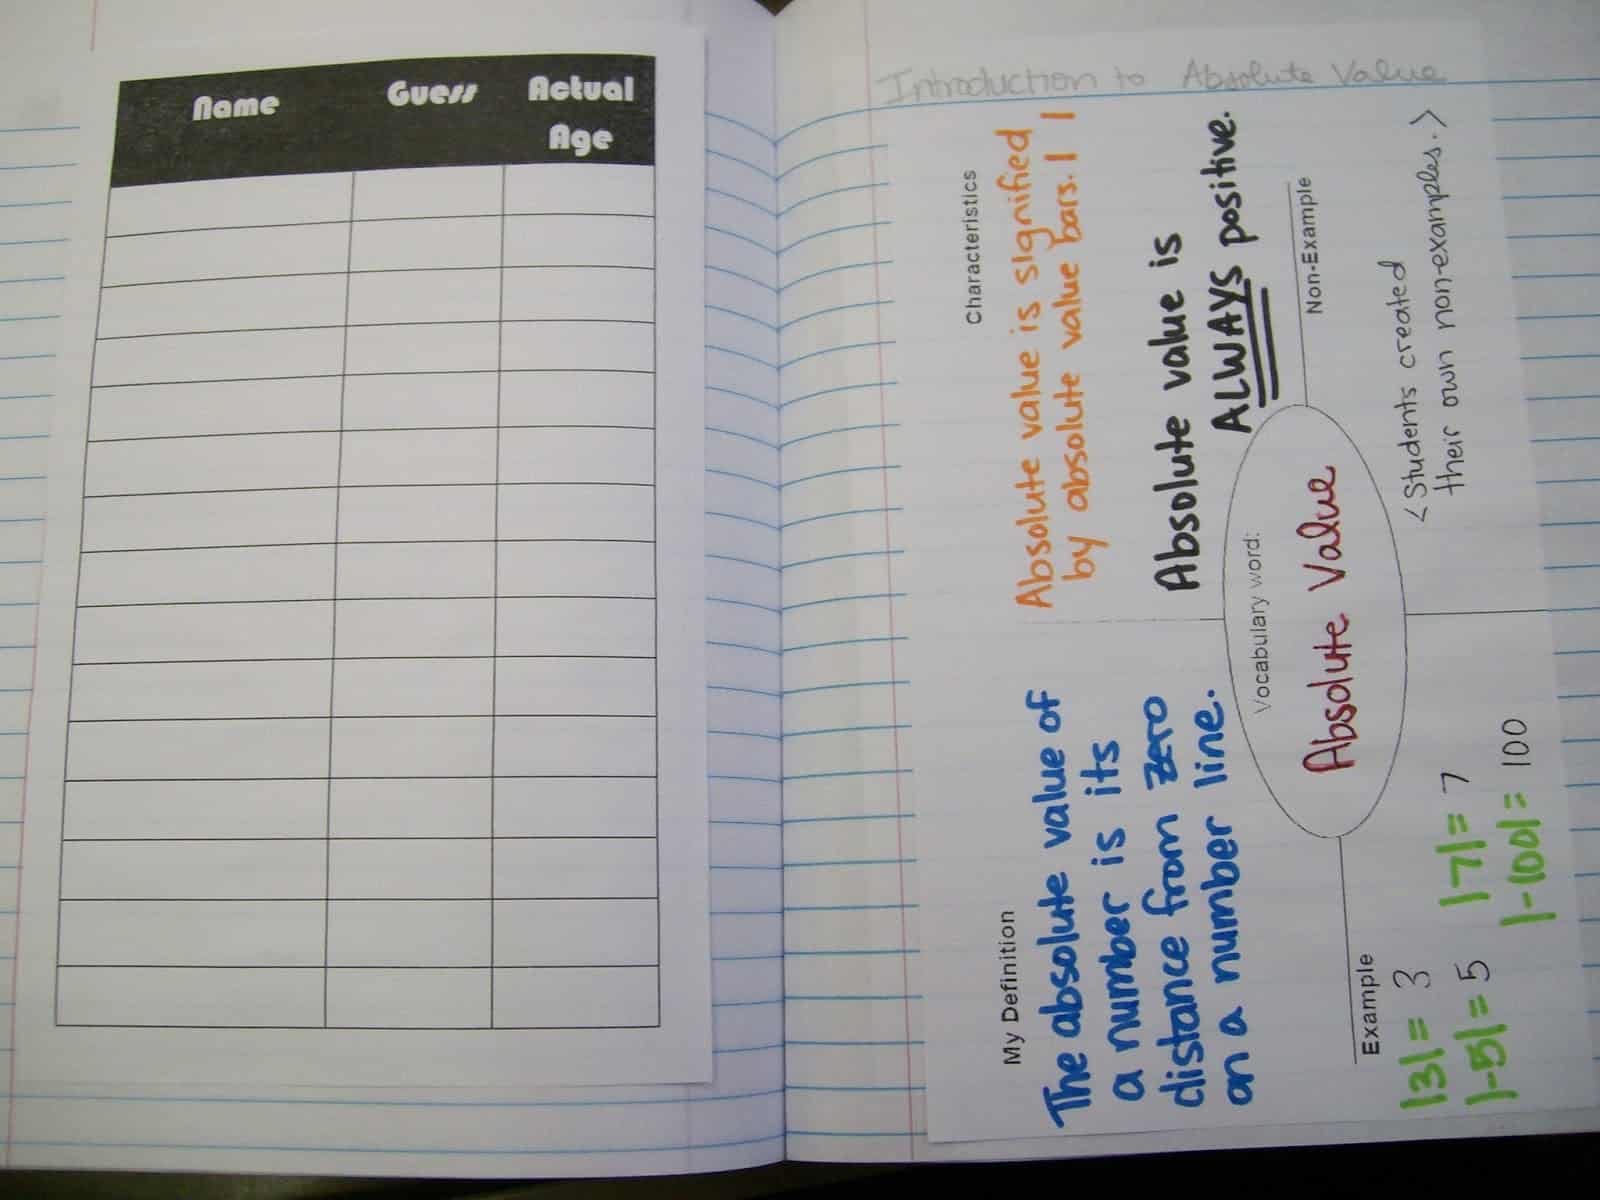 Name Guess Actual
Age
Introduction to Absolute Value
My Definition
The absolute value of
a number is its
distance from zero
on a number line.
Characteristics
Absolute value is signified
by absolute value bars. | |
Absolute value is
ALWAYS positive.
Vocabulary word:
Absolute Value
Example
|3| = 3
|-5| = 5
|7| = 7
|-100| = 100
Non-Example
<Students created
their own non-examples.>